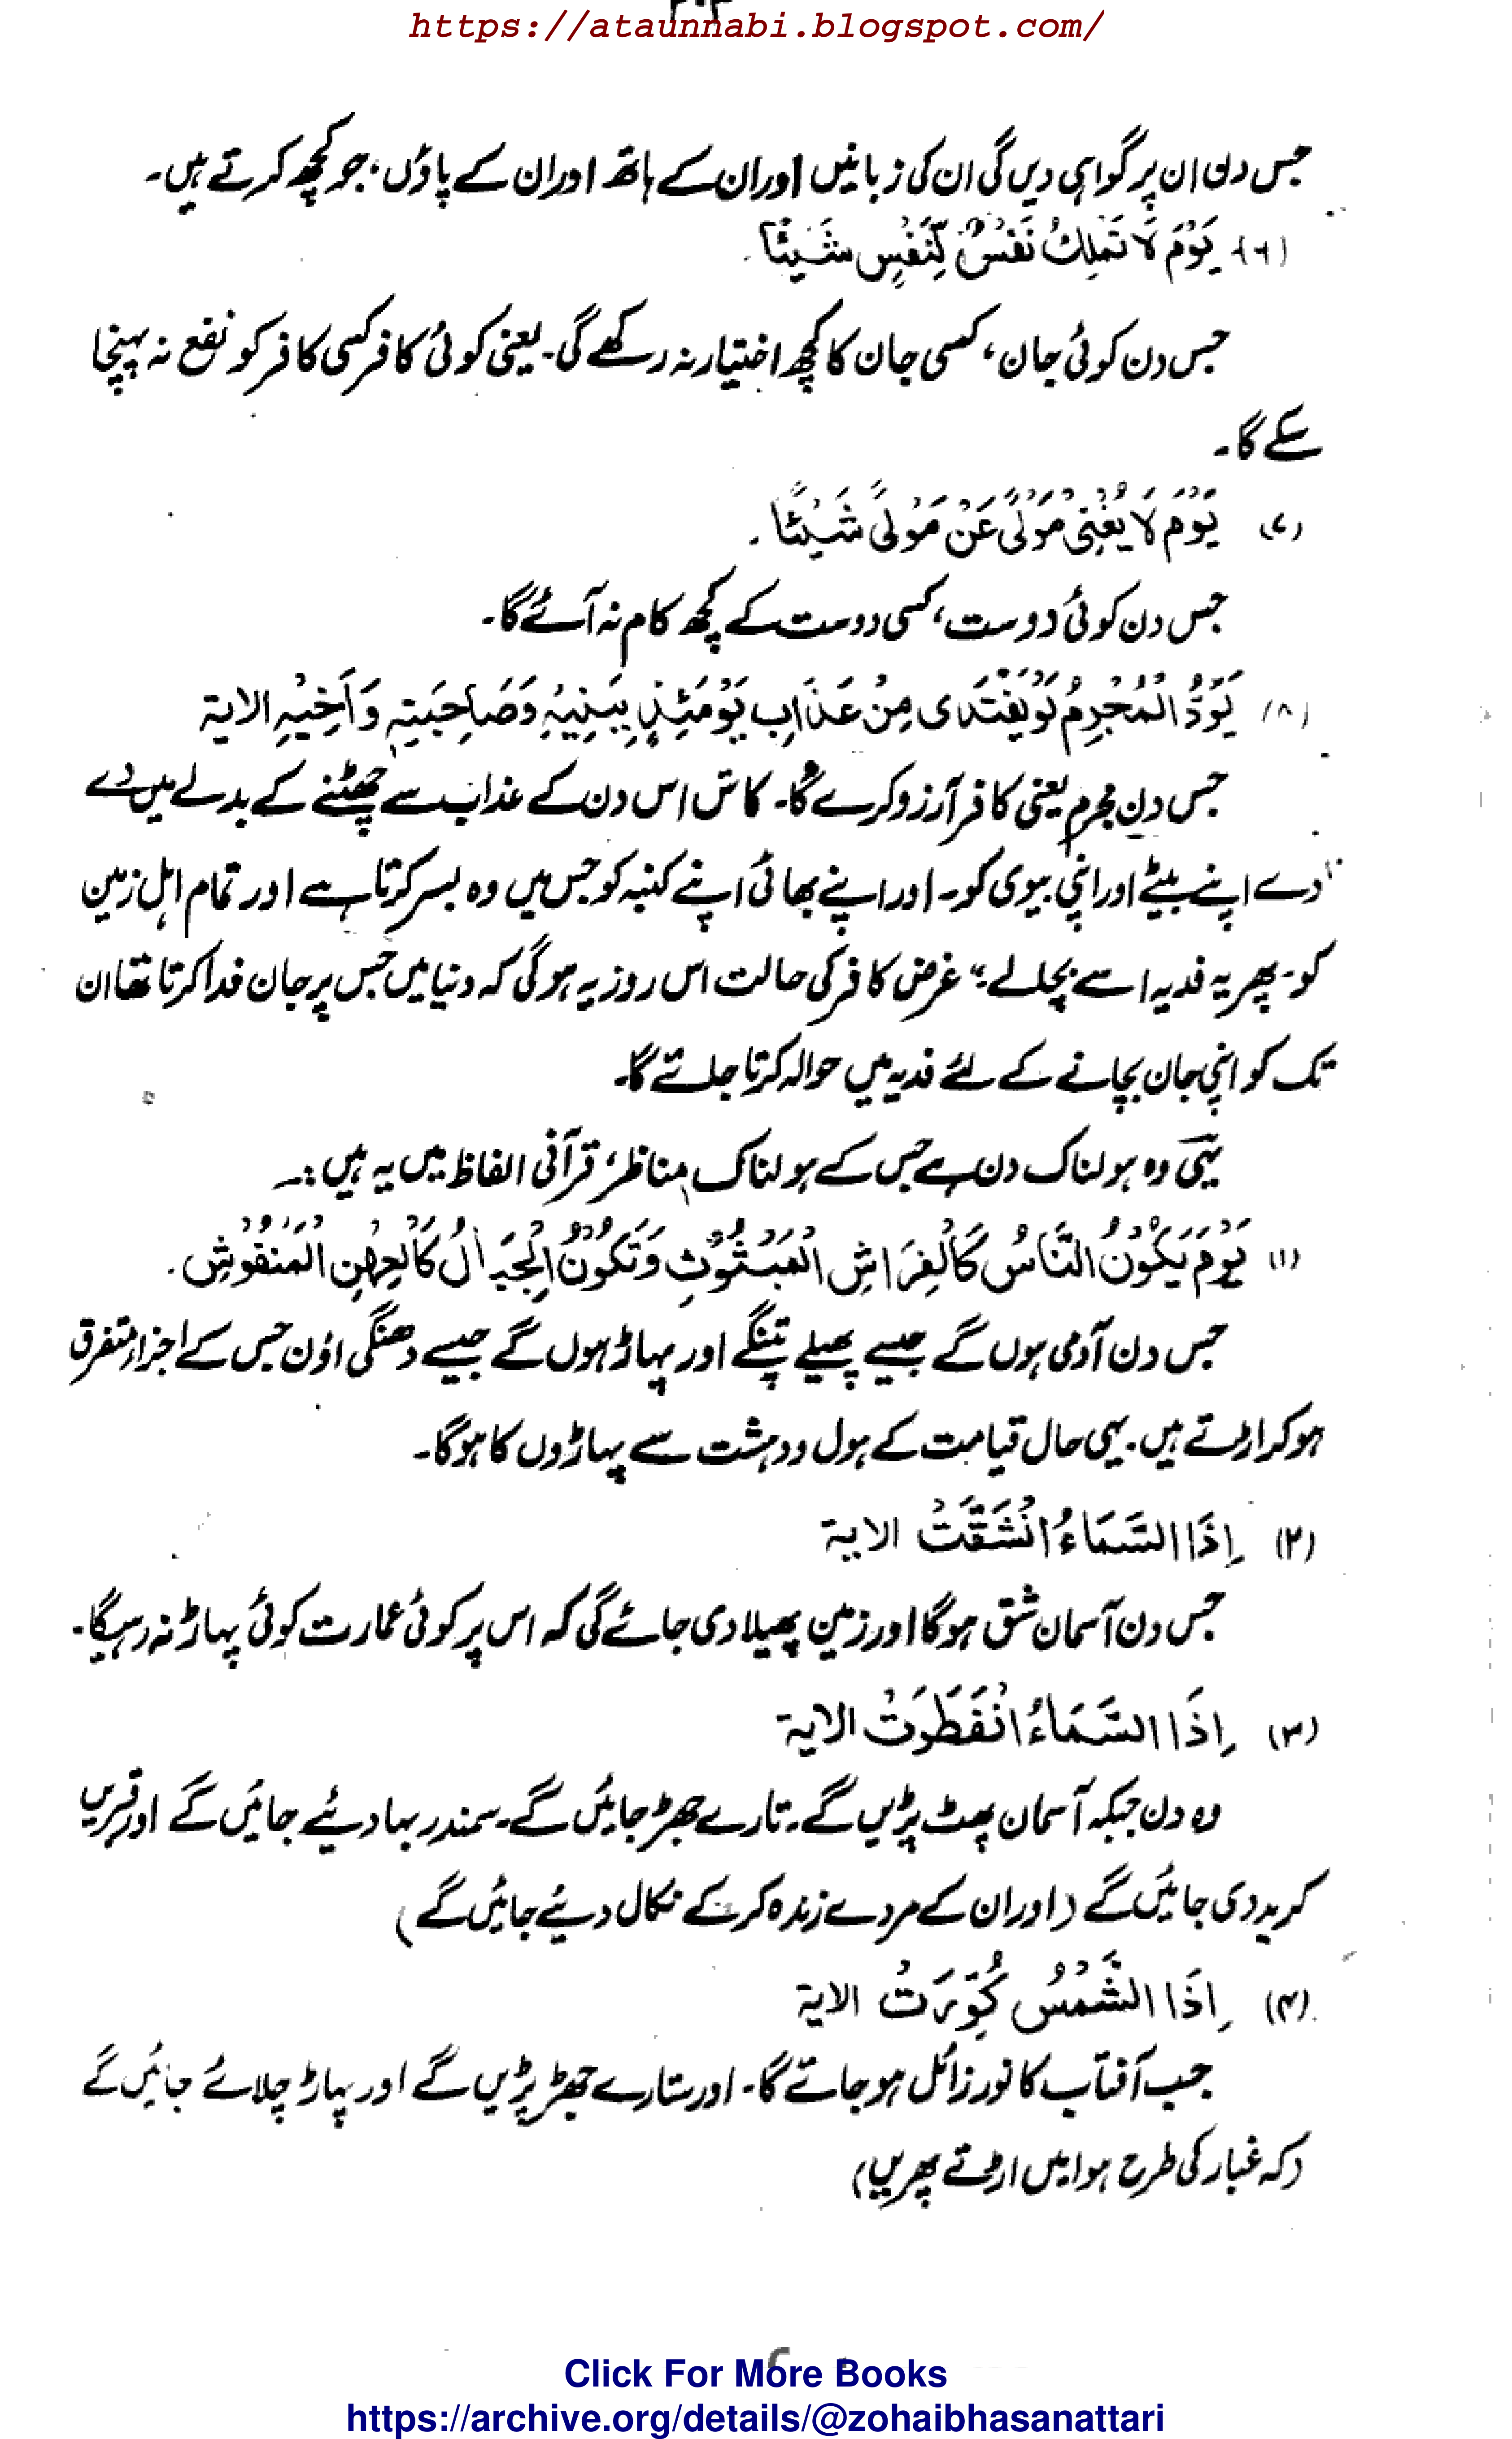 https://ataunnabi.blogspot.com/
جس دن ان پر گواہی دیں گی ان کی زبانیں اور ان کے ہاتھ اور ان کے پاؤں، جو کچھ کرتے ہیں۔
(۶) يَوْمَ لَا تَمْلِكُ نَفْسٌ لِّنَفْسٍ شَيْئًا۔
جس دن کوئی جان، کسی جان کا کچھ اختیار نہ رکھے گی۔ یعنی کوئی کافر کسی کافر کو نفع نہ پہنچا
سکے گا۔
(۷) يَوْمَ لَا يُغْنِىْ مَوْلًى عَنْ مَوْلًى شَيْئًا۔
جس دن کوئی دوست، کسی دوست کے کچھ کام نہ آئے گا۔
(۸) يَوَدُّ الْمُجْرِمُ لَوْ يَفْتَدِى مِنْ عَذَابِ يَوْمَئِذٍ بِبَنِيْهِ وَصَاحِبَتِهٖ وَاَخِيْهِ الاية
جس دن مجرم یعنی کافر آرزو کرے گا۔ کاش اس دن کے عذاب سے چھٹنے کے بدلے میں دے
دے اپنے بیٹے اور اپنی بیوی کو۔ اور اپنے بھائی اپنے کنبہ کو جس میں وہ بسر کرتا ہے اور تمام اہل زمین
کو۔ پھر یہ فدیہ اسے بچالے۔“ غرض کافر کی حالت اس روز یہ ہوگی کہ دنیا میں جس پر جان فدا کرتا تھا ان
تک کو اپنی جان بچانے کے لئے فدیہ میں حوالہ کرتا جائے گا۔
یہی وہ ہولناک دن ہے جس کے ہولناک مناظر، قرآنی الفاظ میں یہ ہیں :۔
(۱) يَوْمَ يَكُوْنُ النَّاسُ كَالْفِرَاشِ الْمَبْثُوْثِ وَتَكُوْنُ الْجِبَالُ كَالْعِهْنِ الْمَنْفُوْشِ۔
جس دن آدمی ہوں گے جیسے پھیلے پتنگے اور پہاڑ ہوں گے جیسے دھنکی اون جس کے اجزاء متفرق
ہو کر اڑتے ہیں۔ یہی حال قیامت کے ہول و دہشت سے پہاڑوں کا ہوگا۔
(۲) اِذَا السَّمَاءُ انْشَقَّتْ الاية
جس دن آسمان شق ہوگا اور زمین پھیلا دی جائے گی کہ اس پر کوئی عمارت کوئی پہاڑ نہ رہیگا۔
(۳) اِذَا السَّمَاءُ انْفَطَرَتْ الاية
وہ دن جبکہ آسمان پھٹ پڑیں گے۔ تارے جھڑ جائیں گے۔ سمندر بہا دیئے جائیں گے اور قبریں
کرید دی جائیں گے (اور ان کے مردے زندہ کر کے نکال دیئے جائیں گے)
(۴) اِذَا الشَّمْسُ كُوِّرَتْ الاية
جب آفتاب کا نور زائل ہو جائے گا۔ اور ستارے جھڑ پڑیں گے اور پہاڑ چلائے جائیں گے
(کہ غبار کی طرح ہوا میں اڑتے پھریں)
Click For More Books
https://archive.org/details/@zohaibhasanattari